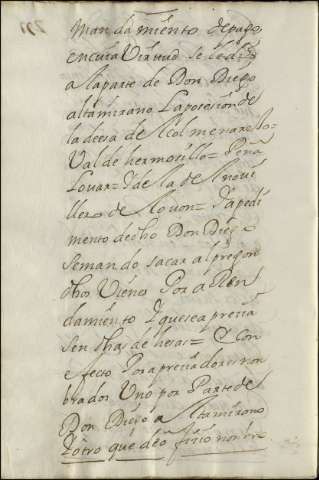 mandamiento depago,
encuia Virtud se le dio
a la parte de Don Diego
altamirano La posesion de
la deesa de el colmenarejo=
Val de hermosillo= Peña
Lovar= y de la de el novi
llero de
mento dedho Don Diego
semando sacar al pregon
dhos Vienes Por a Ren
damiento y quese aprecia
sen dhas de hesas= Y Con
efecto Por apreciadores non
brados Uno por Parte de
Don Diego Altamirano
y otro que de ofizio nonbro